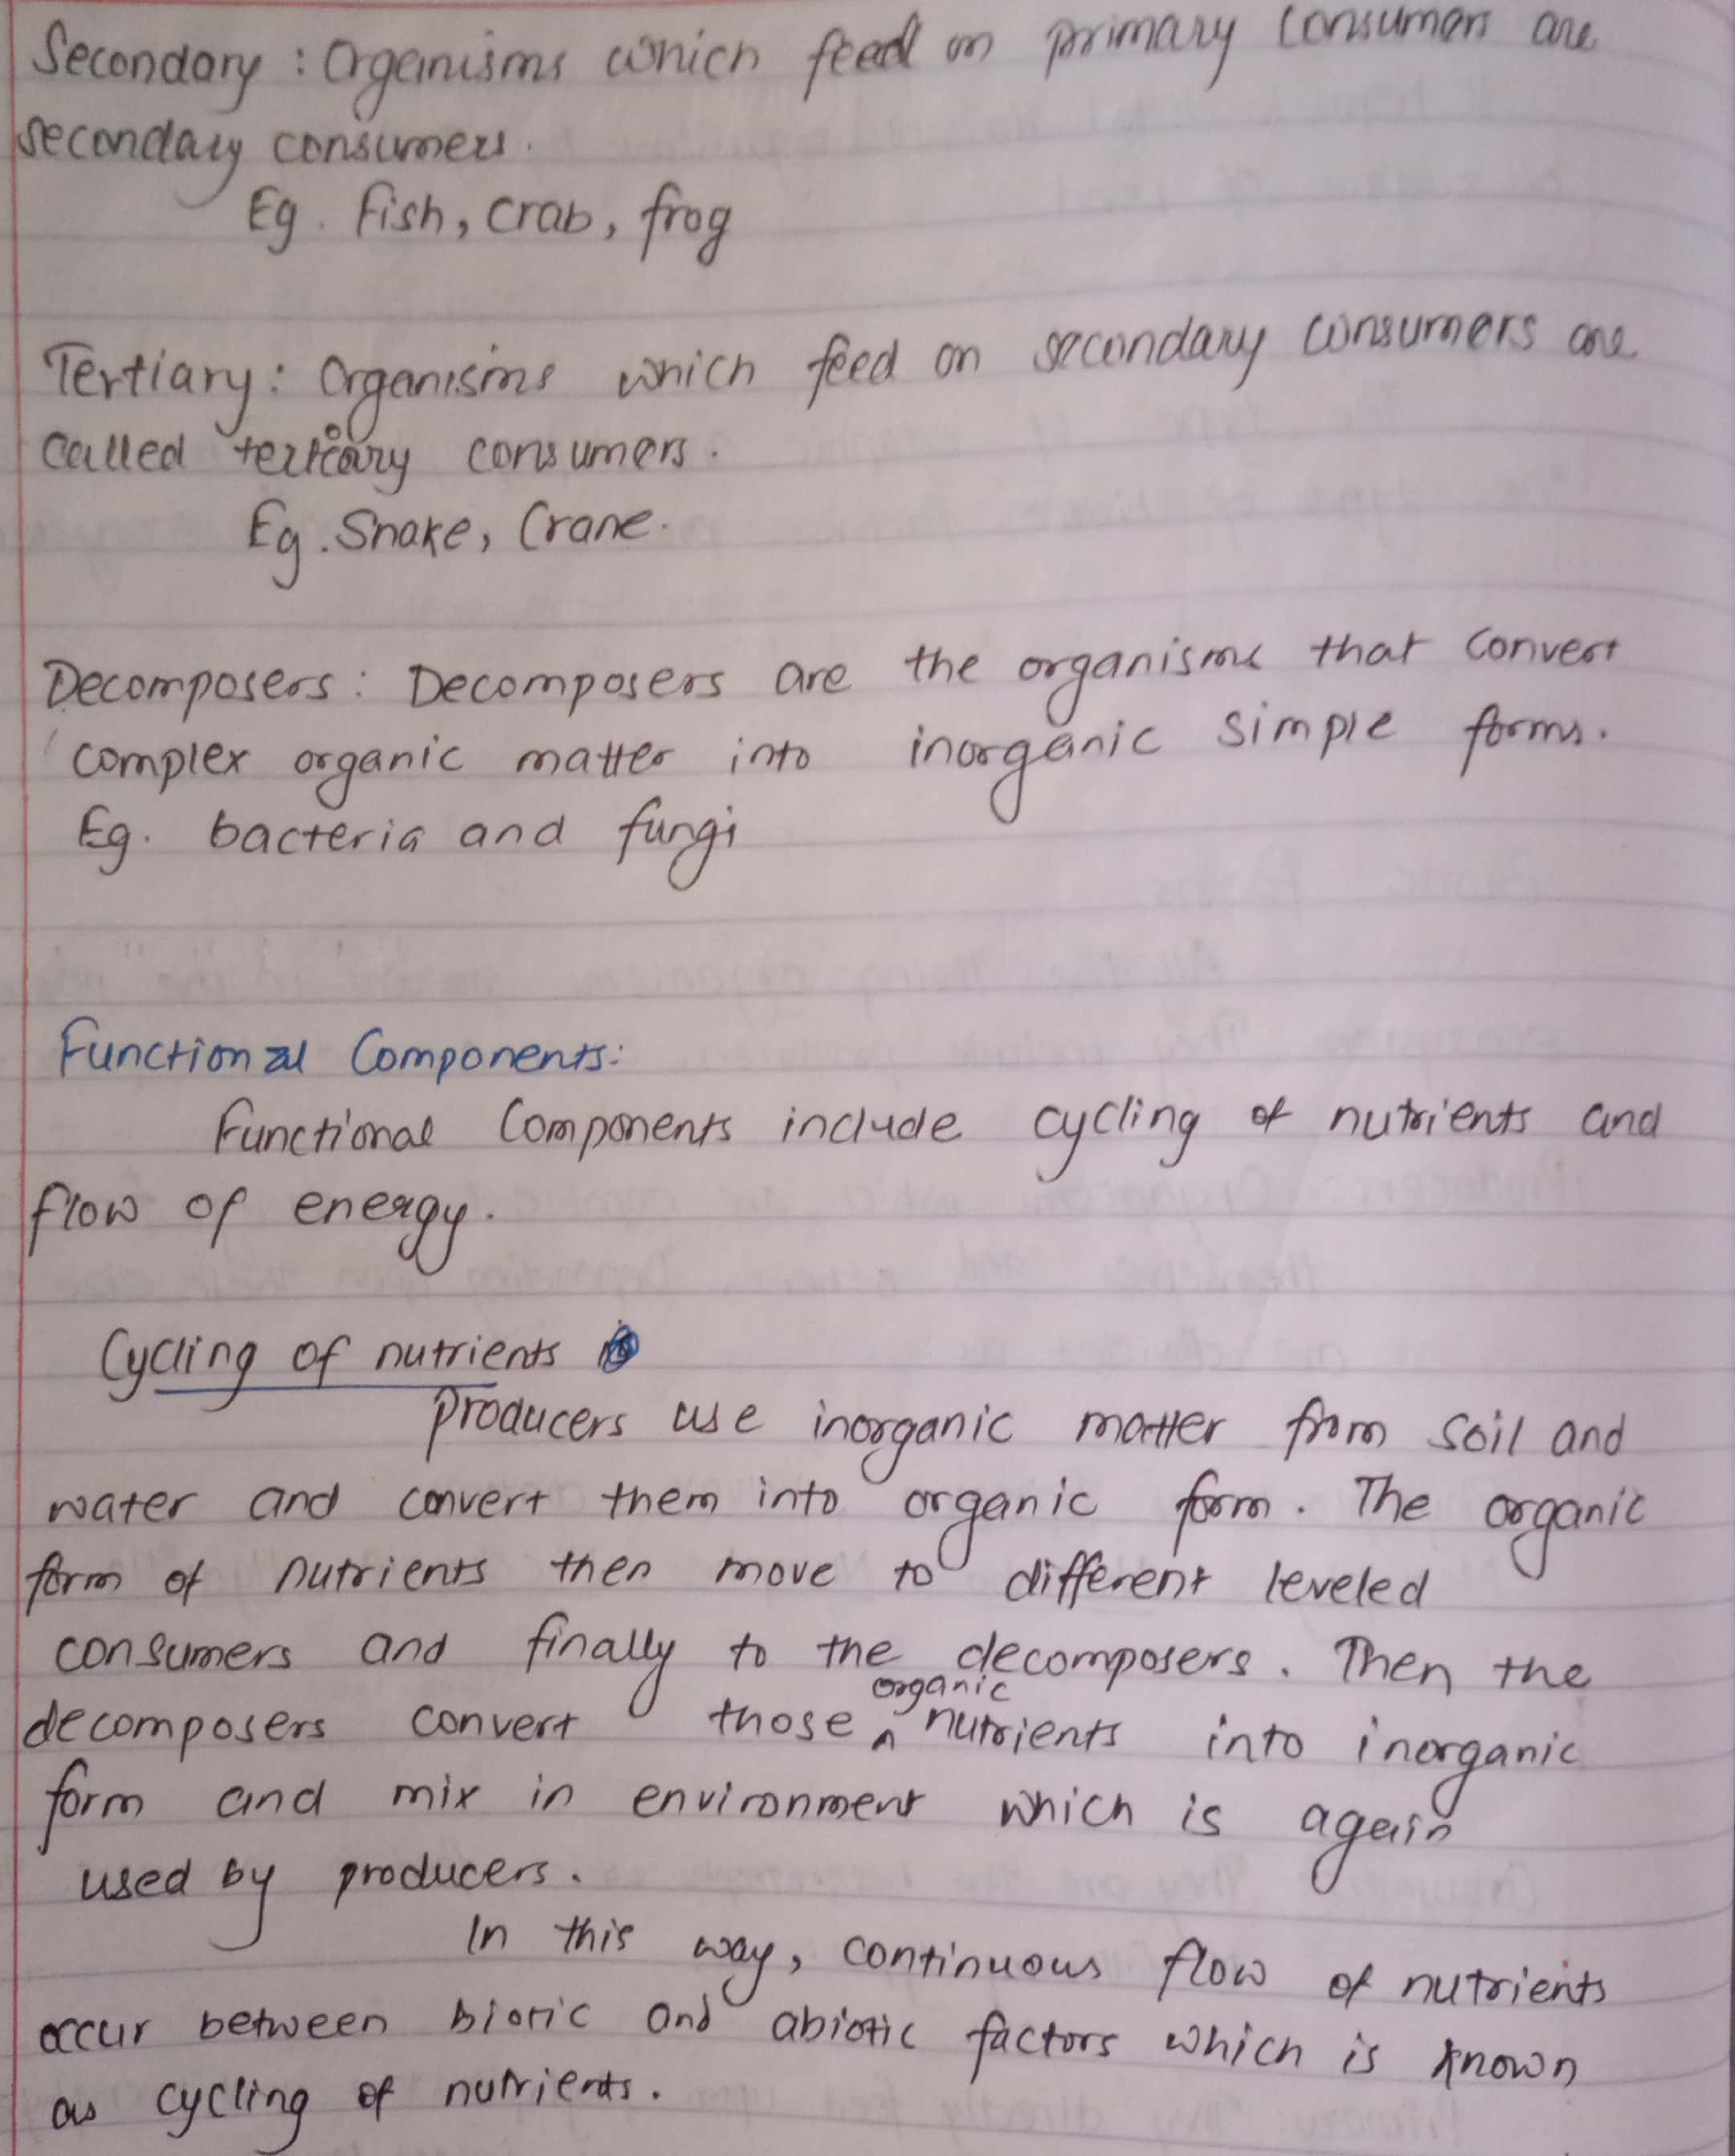 Secondary : Organisms which feed on primary consumers are
secondary consumers.
Eg. Fish, crab, frog
Tertiary : Organisms which feed on secondary consumers are
called tertiary consumers.
Eg. Snake, Crane.
Decomposers : Decomposers are the organisms that convert
complex organic matter into inorganic simple forms.
Eg. bacteria and fungi
Functional Components:
Functional Components include cycling of nutrients and
flow of energy.
Cycling of nutrients
Producers use inorganic matter from soil and
water and convert them into organic form. The organic
form of nutrients then move to different leveled
consumers and finally to the decomposers. Then the
decomposers convert those organic nutrients into inorganic
form and mix in environment which is again
used by producers.
In this way, continuous flow of nutrients
occur between biotic and abiotic factors which is known
as cycling of nutrients.